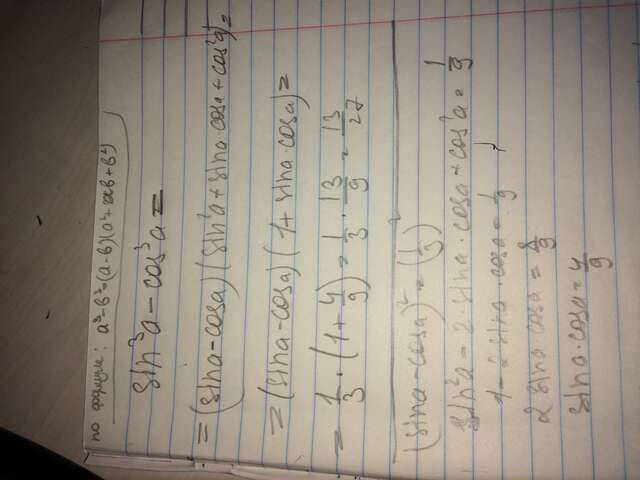 по формуле: a³-b³=(a-b)(a²+ab+b²)
sin³a-cos³a=
=(sina-cosa)(sin²a+sina·cosa+cos²a)=
=(sina-cosa)(1+sina·cosa)=
=1/3·(1+4/9)=1/3·13/9=13/27
(sina-cosa)²=(1/3)²
sin²a-2·sina·cosa+cos²a=1/9
1-2sina·cosa=1/9
2sina·cosa=8/9
sina·cosa=4/9